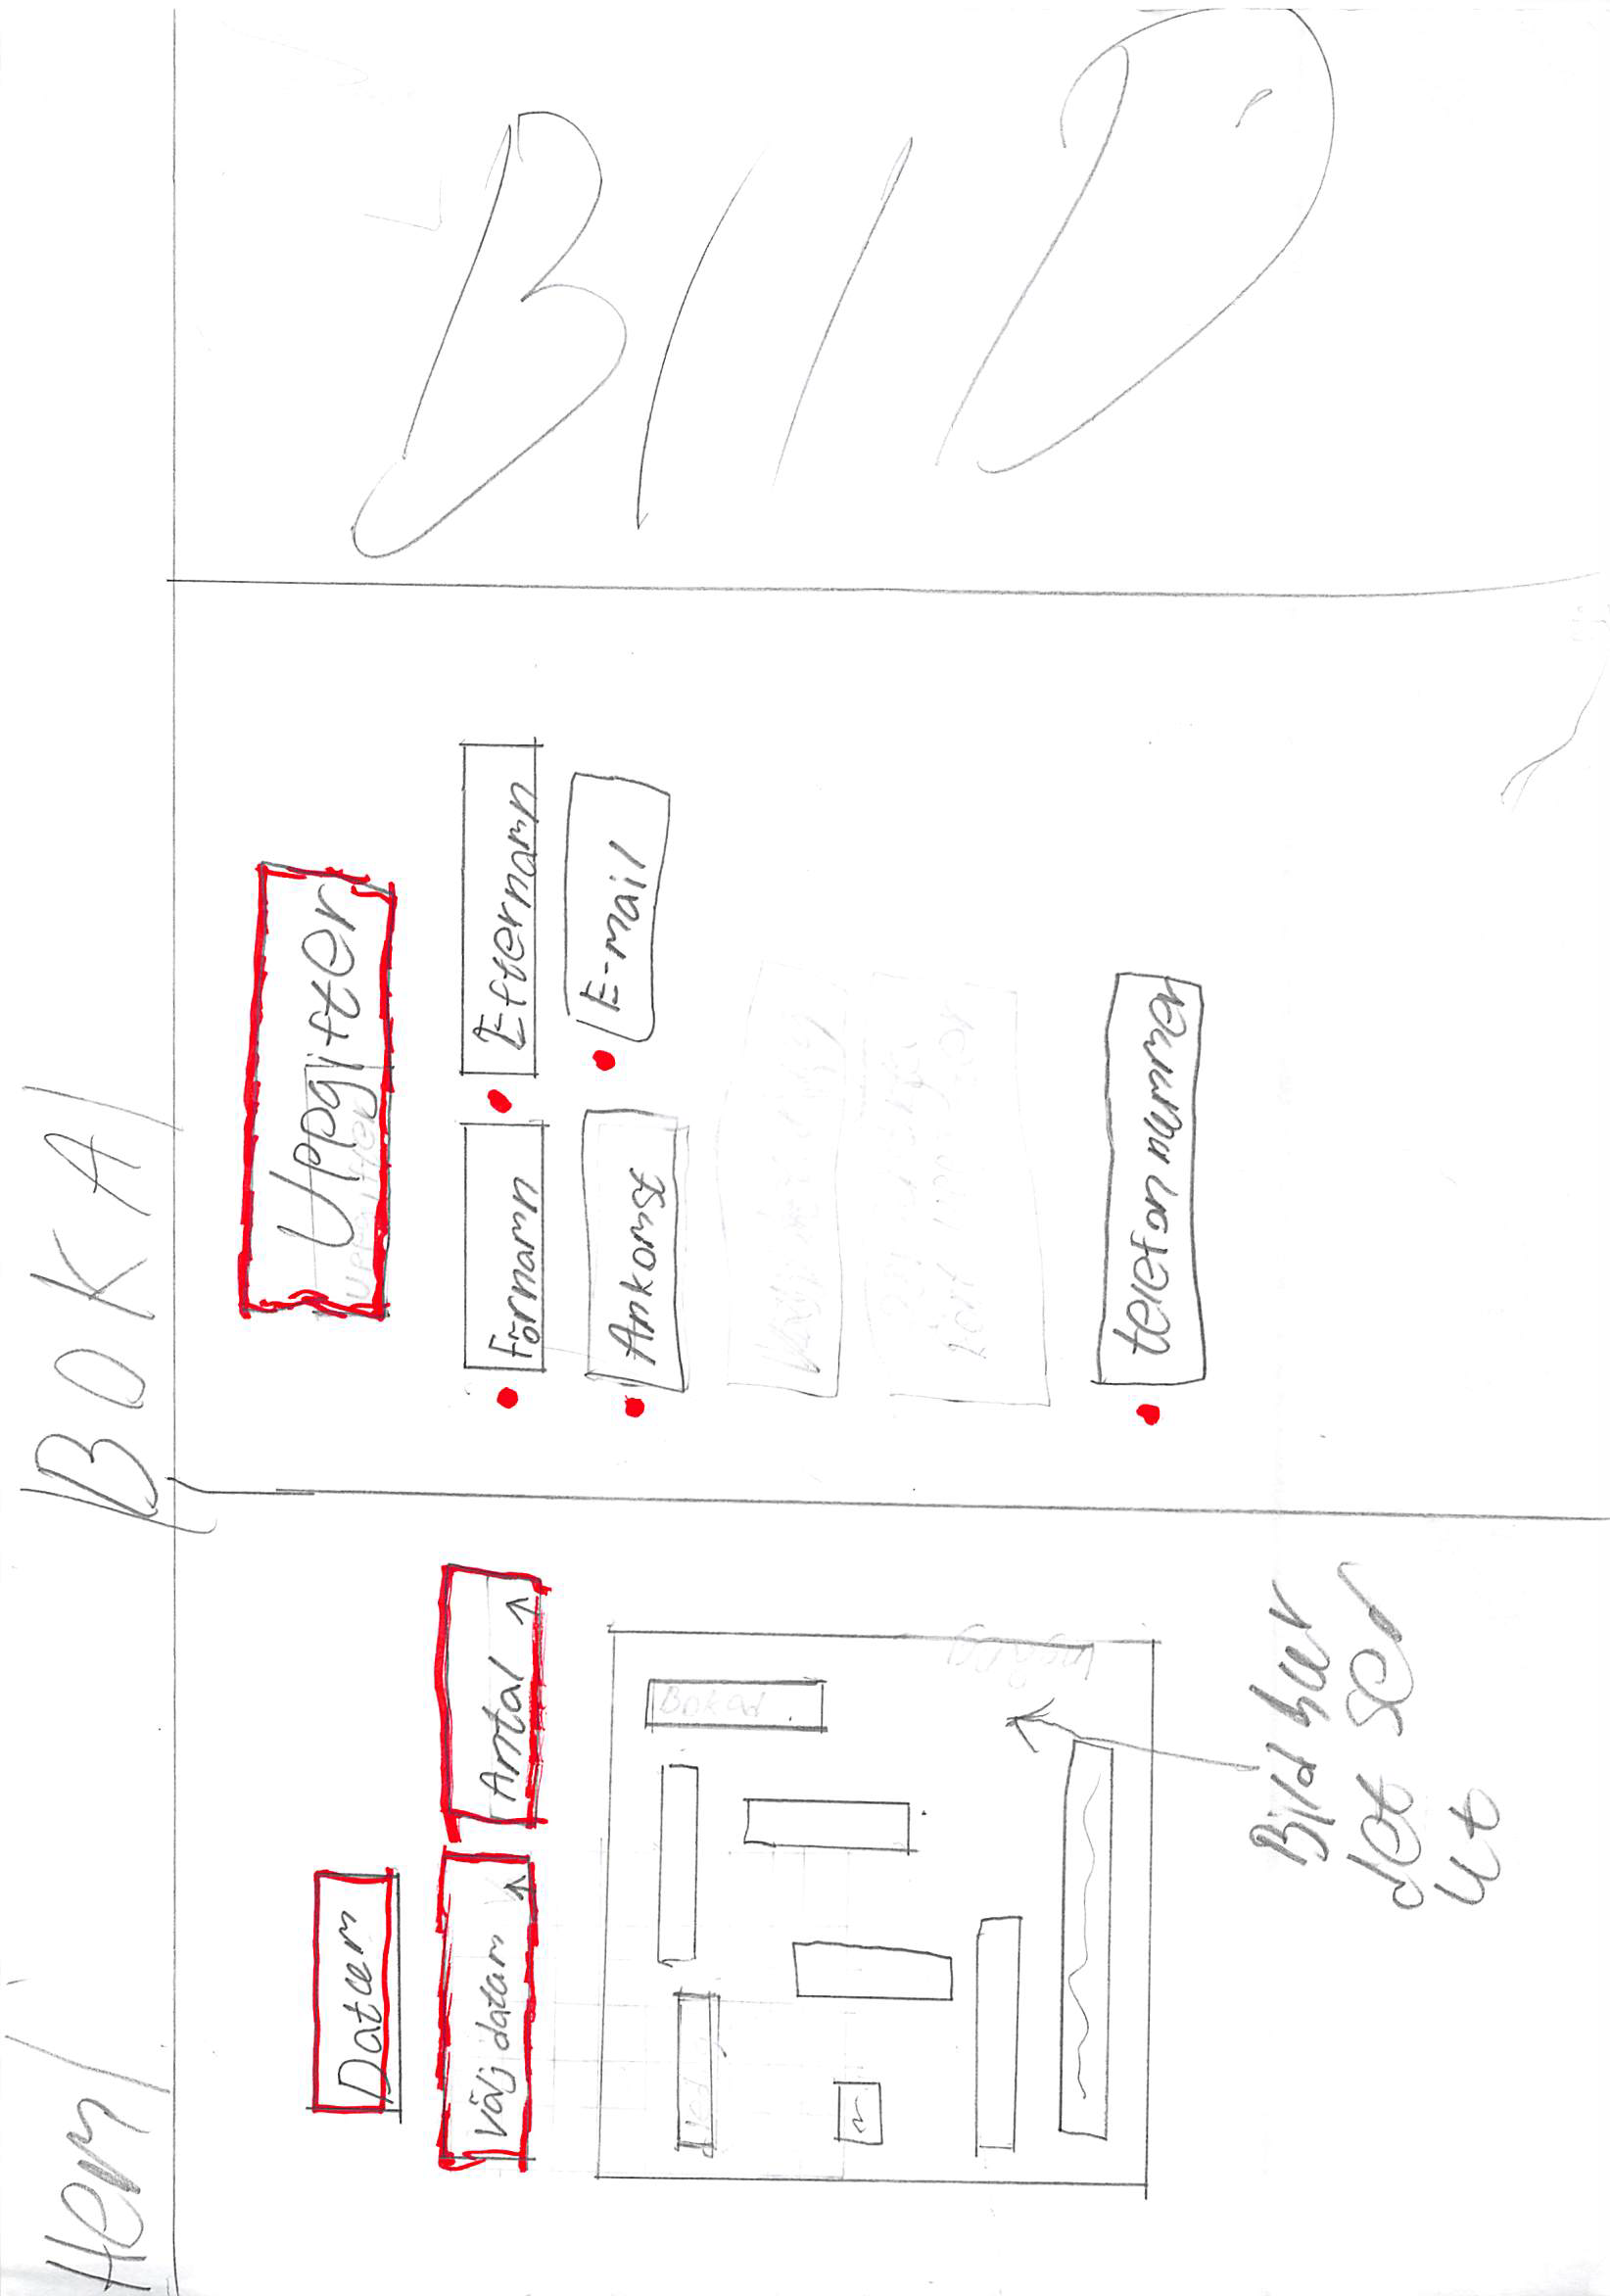 Hem
BOKA
Datum
Välj datum
Antal
Bokad
Bild hur
det ser
ut
Uppgifter
Förnamn
Efternamn
Ankomst
E-mail
telefonnummer